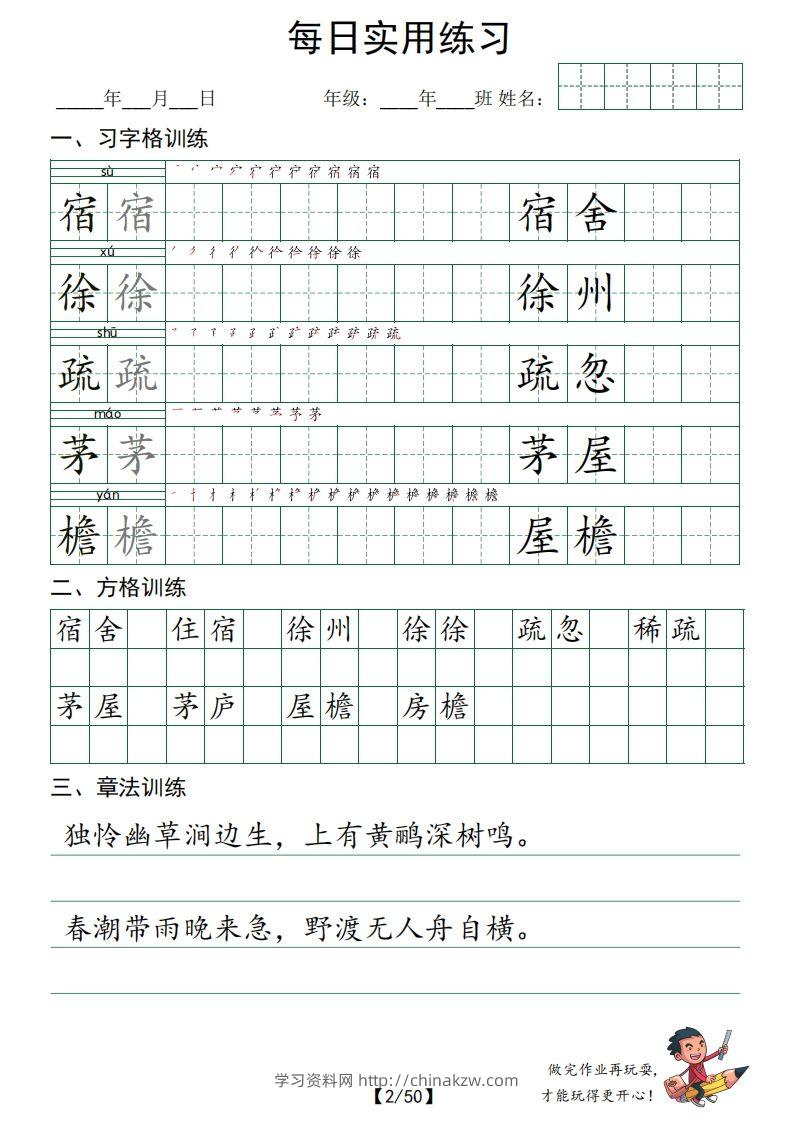 每日实用练习
_____年___月___日 年级：____年____班 姓名：
一、习字格训练
sù
宿 宿 宿 舍
xú
徐 徐 徐 州
shū
疏 疏 疏 忽
máo
茅 茅 茅 屋
yán
檐 檐 屋 檐
二、方格训练
宿 舍 住 宿 徐 州 徐 徐 疏 忽 稀 疏
茅 屋 茅 庐 屋 檐 房 檐
三、章法训练
独怜幽草涧边生，上有黄鹂深树鸣。
春潮带雨晚来急，野渡无人舟自横。
做完作业再玩耍，
才能玩得更开心！
学习资料网 http://chinakzw.com
【2/50】